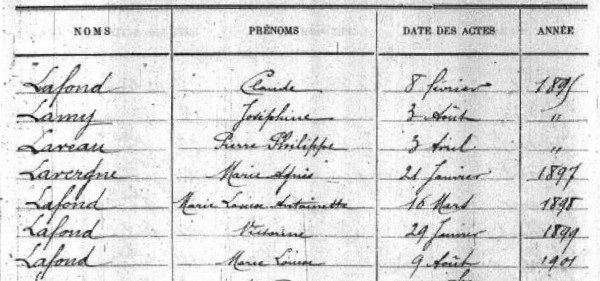 NOMS PRÉNOMS DATE DES ACTES ANNÉE
Lafond Claude 8 février 1895
Lamy Joséphine 3 Août "
Lareau Pierre Philippe 3 Avril "
Lavergne Marie Agnès 21 Janvier 1897
Lafond Marie Louise Antoinette 16 Mars 1898
Lafond 29 Janvier 1899
Lafond Marie Louise 9 Août 1901